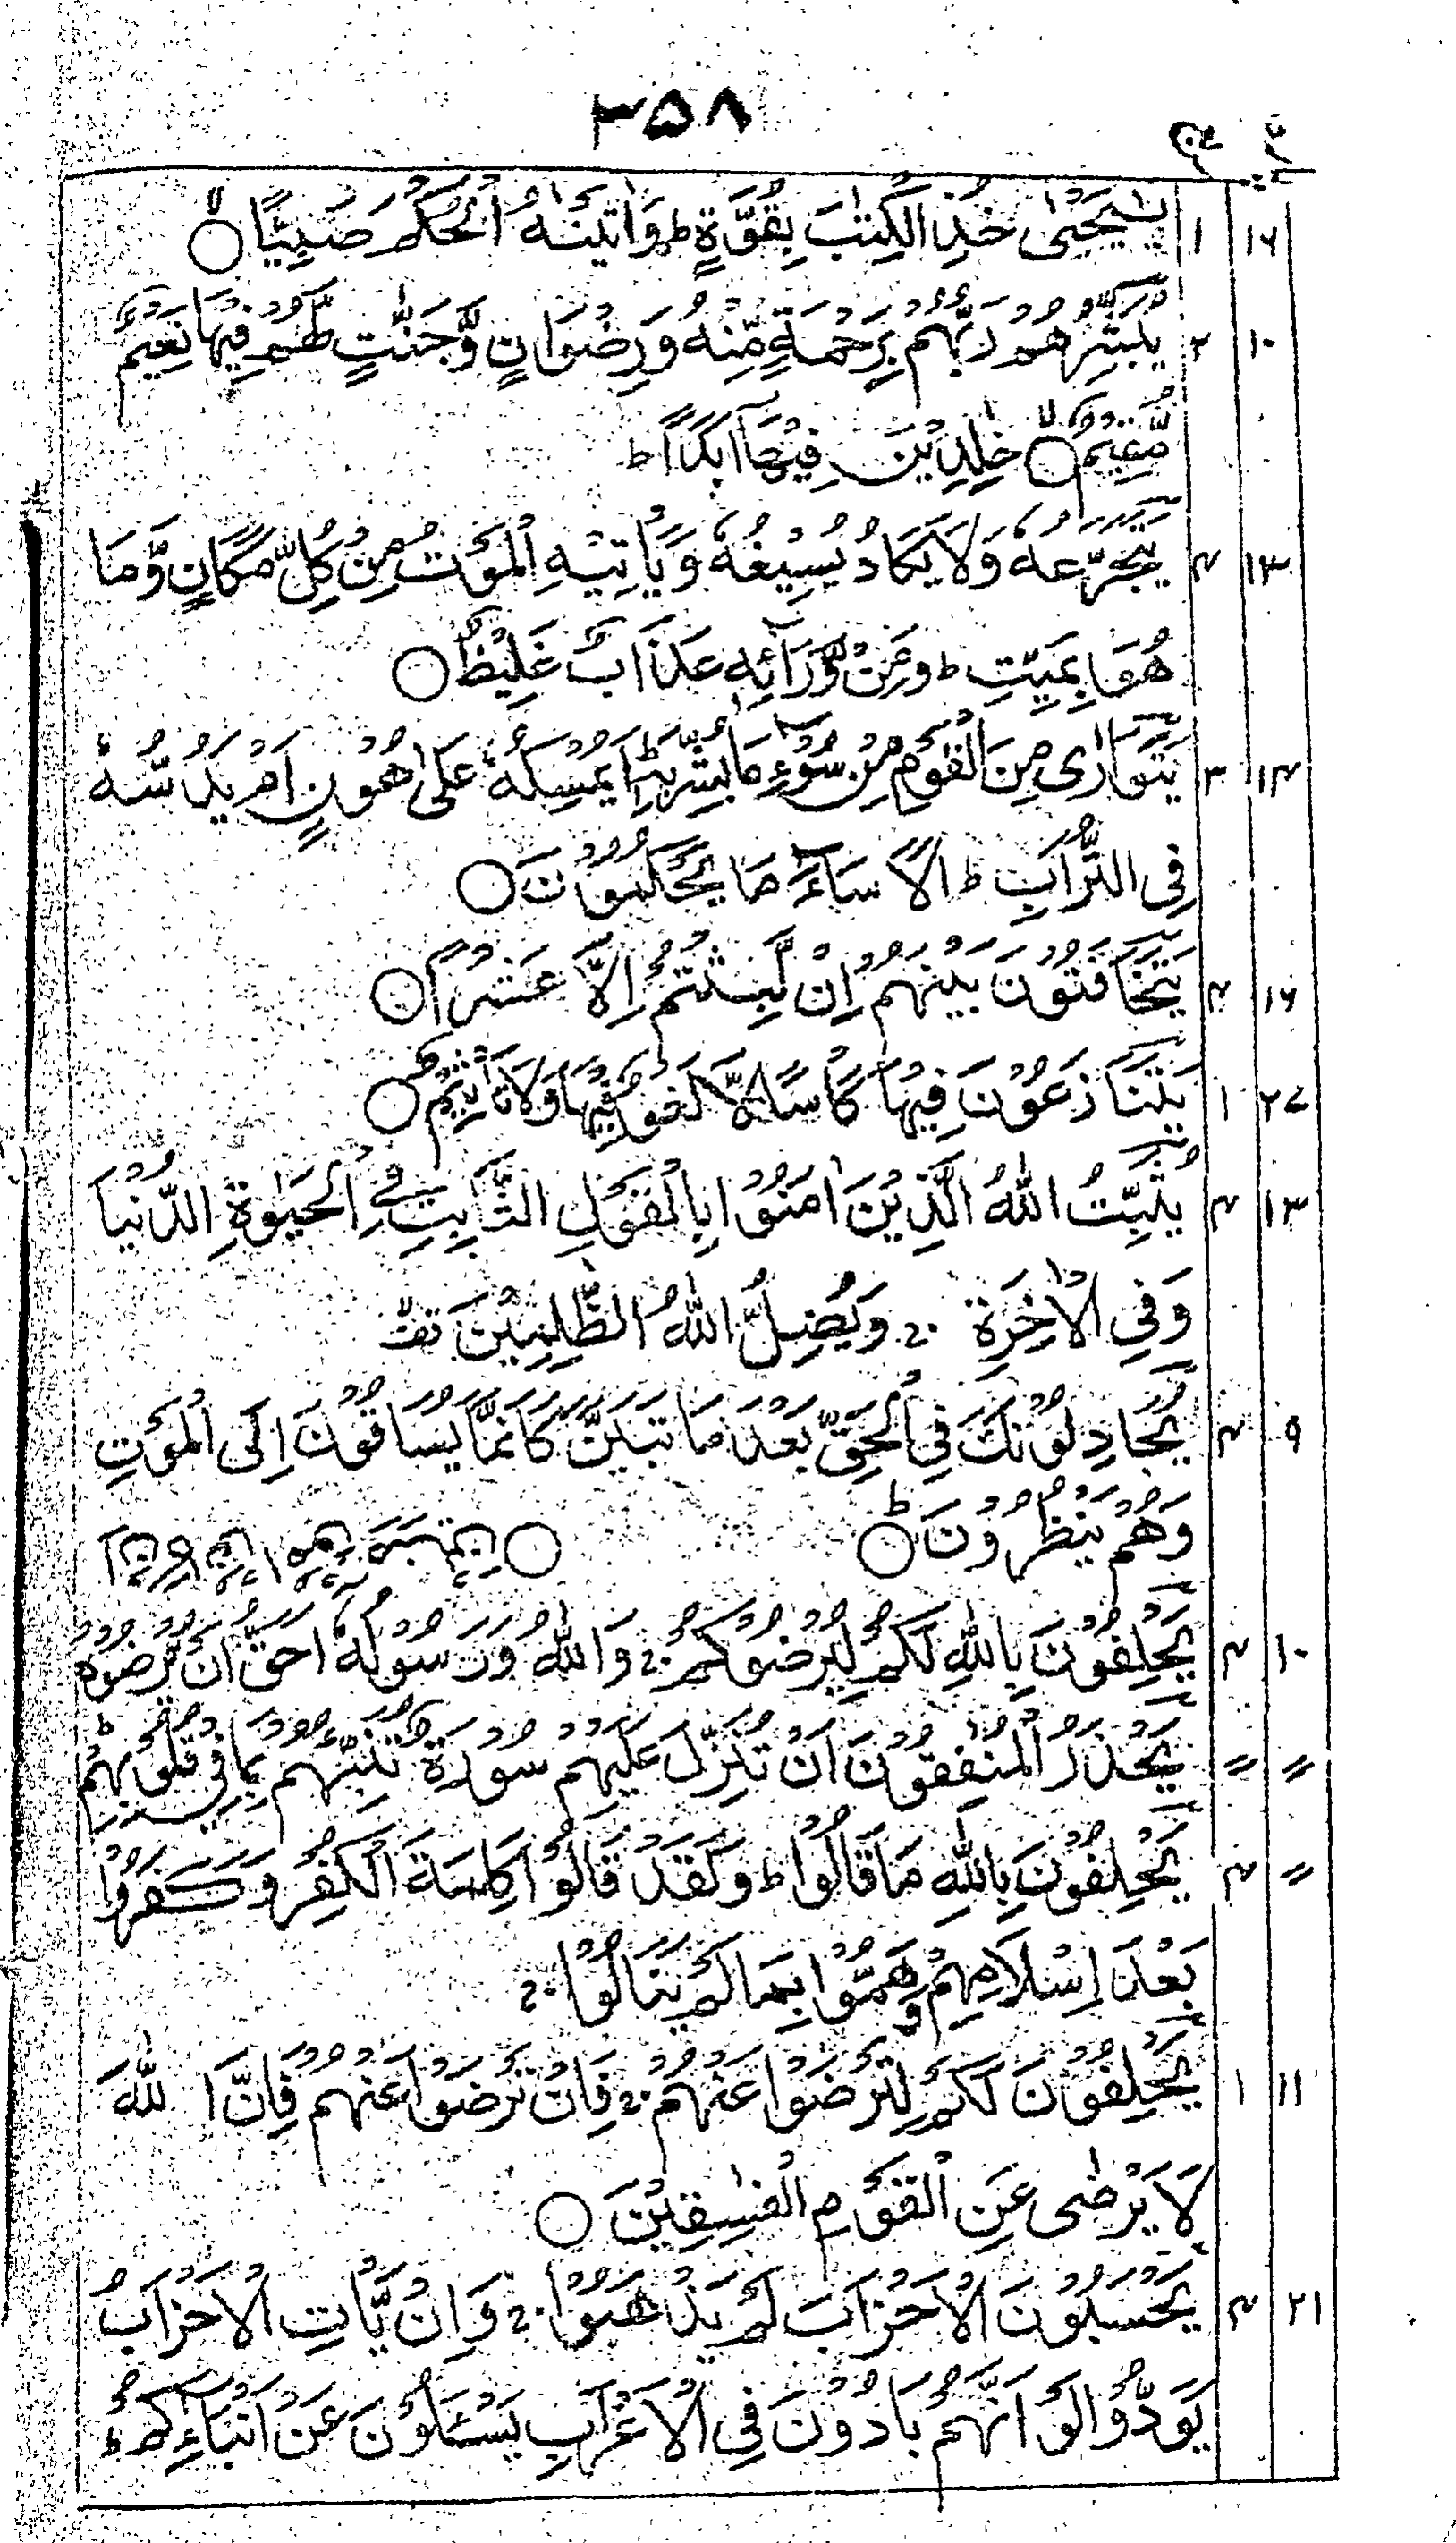 ۳۵۸
۱۶ ۱ يٰيَحْيٰى خُذِ الْكِتٰبَ بِقُوَّةٍ ط وَاٰتَيْنٰهُ الْحُكْمَ صَبِيًّا ۙ○
۱۰ ۲ يُبَشِّرُهُمْ رَبُّهُمْ بِرَحْمَةٍ مِّنْهُ وَرِضْوَانٍ وَّجَنّٰتٍ لَّهُمْ فِيْهَا نَعِيْمٌ
مُّقِيْمٌ ۙ○ خٰلِدِيْنَ فِيْهَآ اَبَدًا ط
۱۳ ۴ يَّتَجَرَّعُهٗ وَلَا يَكَادُ يُسِيْغُهٗ وَيَاْتِيْهِ الْمَوْتُ مِنْ كُلِّ مَكَانٍ وَّمَا
هُوَ بِمَيِّتٍ ط وَمِنْ وَّرَآئِهٖ عَذَابٌ غَلِيْظٌ ○
۱۴ ۳ يَتَوَارٰى مِنَ الْقَوْمِ مِنْ سُوْٓءِ مَا بُشِّرَ بِهٖ ط اَيُمْسِكُهٗ عَلٰى هُوْنٍ اَمْ يَدُسُّهٗ
فِى التُّرَابِ ط اَلَا سَآءَ مَا يَحْكُمُوْنَ ○
۱۶ ۴ يَّتَخَافَتُوْنَ بَيْنَهُمْ اِنْ لَّبِثْتُمْ اِلَّا عَشْرًا ○
۲۷ ۱ يَتَنَازَعُوْنَ فِيْهَا كَاْسًا لَّا لَغْوٌ فِيْهَا وَلَا تَاْثِيْمٌ ○
۱۳ ۴ يُثَبِّتُ اللّٰهُ الَّذِيْنَ اٰمَنُوْا بِالْقَوْلِ الثَّابِتِ فِي الْحَيٰوةِ الدُّنْيَا
وَفِى الْاٰخِرَةِ ج وَيُضِلُّ اللّٰهُ الظّٰلِمِيْنَ قف
۹ ۴ يُجَادِلُوْنَكَ فِى الْحَقِّ بَعْدَ مَا تَبَيَّنَ كَاَنَّمَا يُسَاقُوْنَ اِلَى الْمَوْتِ
وَهُمْ يَنْظُرُوْنَ ط○ ○
۱۰ ۴ يَحْلِفُوْنَ بِاللّٰهِ لَكُمْ لِيُرْضُوْكُمْ ج وَاللّٰهُ وَرَسُوْلُهٗٓ اَحَقُّ اَنْ يُّرْضُوْهُ
〃 〃 يَحْذَرُ الْمُنٰفِقُوْنَ اَنْ تُنَزَّلَ عَلَيْهِمْ سُوْرَةٌ تُنَبِّئُهُمْ بِمَا فِيْ قُلُوْبِهِمْ ط
〃 ۴ يَحْلِفُوْنَ بِاللّٰهِ مَا قَالُوْا ط وَلَقَدْ قَالُوْا كَلِمَةَ الْكُفْرِ وَكَفَرُوْا
بَعْدَ اِسْلَامِهِمْ وَهَمُّوْا بِمَا لَمْ يَنَالُوْا ج
۱۱ ۱ يَحْلِفُوْنَ لَكُمْ لِتَرْضَوْا عَنْهُمْ ج فَاِنْ تَرْضَوْا عَنْهُمْ فَاِنَّ اللّٰهَ
لَا يَرْضٰى عَنِ الْقَوْمِ الْفٰسِقِيْنَ ○
۲۱ ۴ يَحْسَبُوْنَ الْاَحْزَابَ لَمْ يَذْهَبُوْا ج وَاِنْ يَّاْتِ الْاَحْزَابُ
يَوَدُّوْا لَوْ اَنَّهُمْ بَادُوْنَ فِى الْاَعْرَابِ يَسْئَلُوْنَ عَنْ اَنْبَآئِكُمْ ط